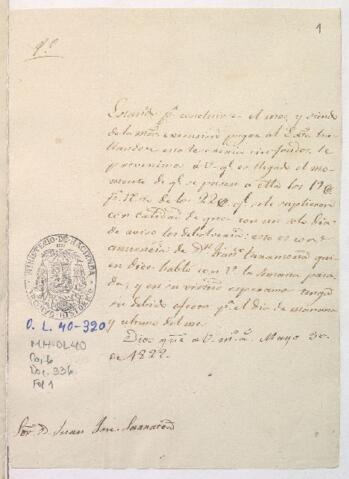 1
Estando pa. concluirse el mes, y siendo
de la mas executiva pagar al
te caxa sin fondos, le
prevenimos á V. qe. es llegado el mo-
mento de qe. se pasen á ella los
de los qe. se le suplieron
con calidad de que con un solo dia
de aviso los debolveria: esto es con
anuencia de Dn. Franco. Carancera qui-
en dice habló con V. la Semana pasa-
da; y en su virtud esperamos tenga
su debido efecto pa. el dia de mañana
y ultimo del mes.
Dios gue. á V. ms. as. Mayo 30
de 1822.
Sor. D. Juan José
MINISTERIO DE HACIENDA
ARCHIVO HISTORICO
O. L. 40-320
MH-OL40
Caj 6
Doc. 336
Fol 1